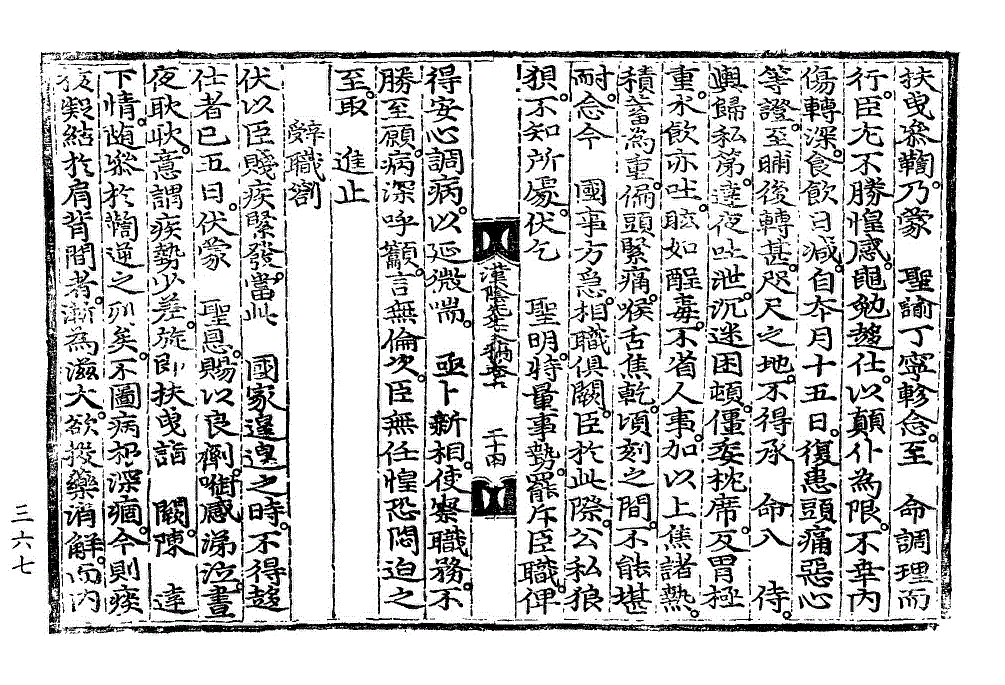 扶曳參鞫。乃蒙 聖諭丁寧軫念。至 命調理而
行。臣尤不勝惶感。黽勉趨仕。以顚仆爲限。不幸內
傷轉深。食飮日减。自本月十五日。復患頭痛惡心
等證。至晡後轉甚。咫尺之地。不得承 命入 侍。
輿歸私第。達夜吐泄。沉迷困頓。僵委枕席。反胃極
重。水飮亦吐。眩如酲毒。不省人事。加以上焦諸熱。
積蓄爲重。偏頭緊痛。喉舌焦乾。頃刻之間。不能堪
耐。念今 國事方急。相職俱闕。臣於此際。公私狼
狽。不知所處。伏乞 聖明。特量事勢。罷斥臣職。俾
漢陰先生文稿卷六 二十四
得安心調病。以延微喘。 亟卜新相。使察職務。不
勝至願。病深呼籲。言無倫次。臣無任惶恐悶迫之
至。取 進止
辭職劄
伏以臣賤疾緊發。當此 國家遑遑之時。不得趨
仕者已五日。伏蒙 聖恩。賜以良劑。啣感涕泣。晝
夜耿耿。意謂疾勢少差。旋卽扶曳詣 闕。陳 達
下情。隨參於